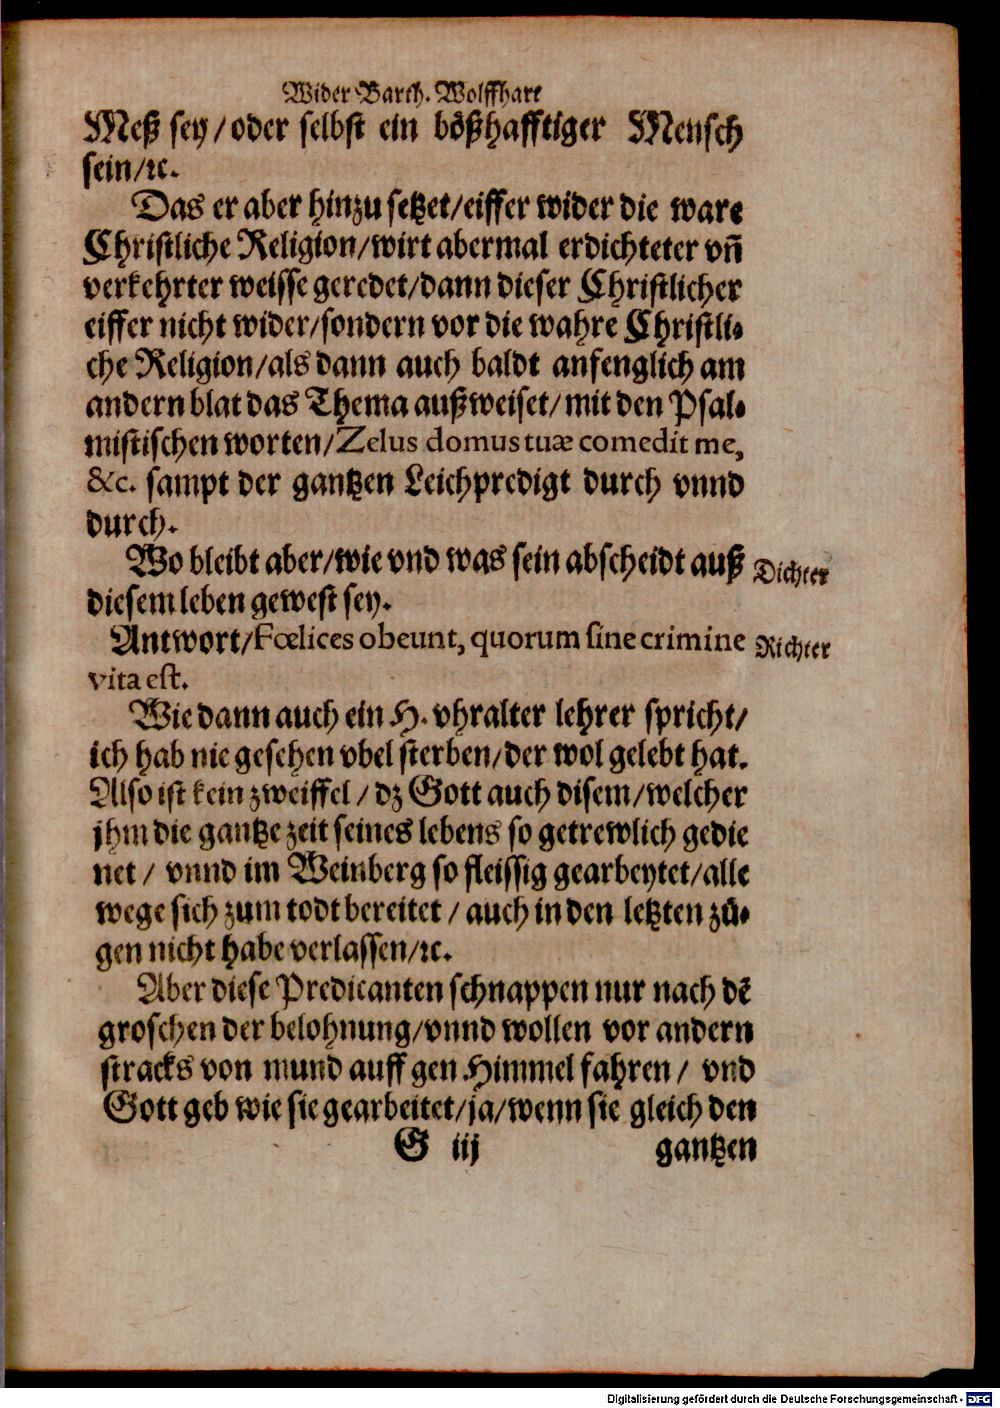 Wider Barth. Wolffhart
Meß sey/oder selbst ein bößhafftiger Mensch
sein/ꝛc.
Das er aber hinzu setzet/eiffer wider die ware
Christliche Religion/wirt abermal erdichteter vñ
verkehrter weisse geredet/dann dieser Christlicher
eiffer nicht wider/sondern vor die wahre Christli-
che Religion/als dann auch baldt anfenglich am
andern blat das Thema außweiset/mit den Psal-
mistischen worten/Zelus domus tuæ comedit me,
&c. sampt der gantzen Leichpredigt durch vnnd
durch.
Wo bleibt aber/wie vnd was sein abscheidt auß
Dichter
diesem leben gewest sey.
Antwort/Fœlices obeunt, quorum sine crimine
Richter
vita est.
Wie dann auch ein H. vhralter lehrer spricht/
ich hab nie gesehen vbel sterben/der wol gelebt hat.
Also ist kein zweiffel / dz Gott auch disem/welcher
jhm die gantze zeit seines lebens so getrewlich gedie
net / vnnd im Weinberg so fleissig gearbeytet/alle
wege sich zum todt bereitet / auch in den letzten zü-
gen nicht habe verlassen/ꝛc.
Aber diese Predicanten schnappen nur nach dē
groschen der belohnung/vnnd wollen vor andern
stracks von mund auff gen Himmel fahren / vnd
Gott geb wie sie gearbeitet/ja/wenn sie gleich den
G iij
gantzen
Digitalisierung gefördert durch die Deutsche Forschungsgemeinschaft - DFG